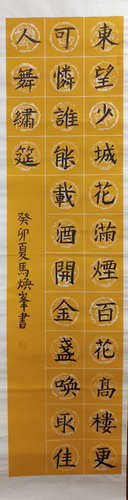 東望少城花滿煙百花高樓更
可憐誰能載酒開金盞喚取佳
人舞繡筵
癸卯夏馬煥峯書